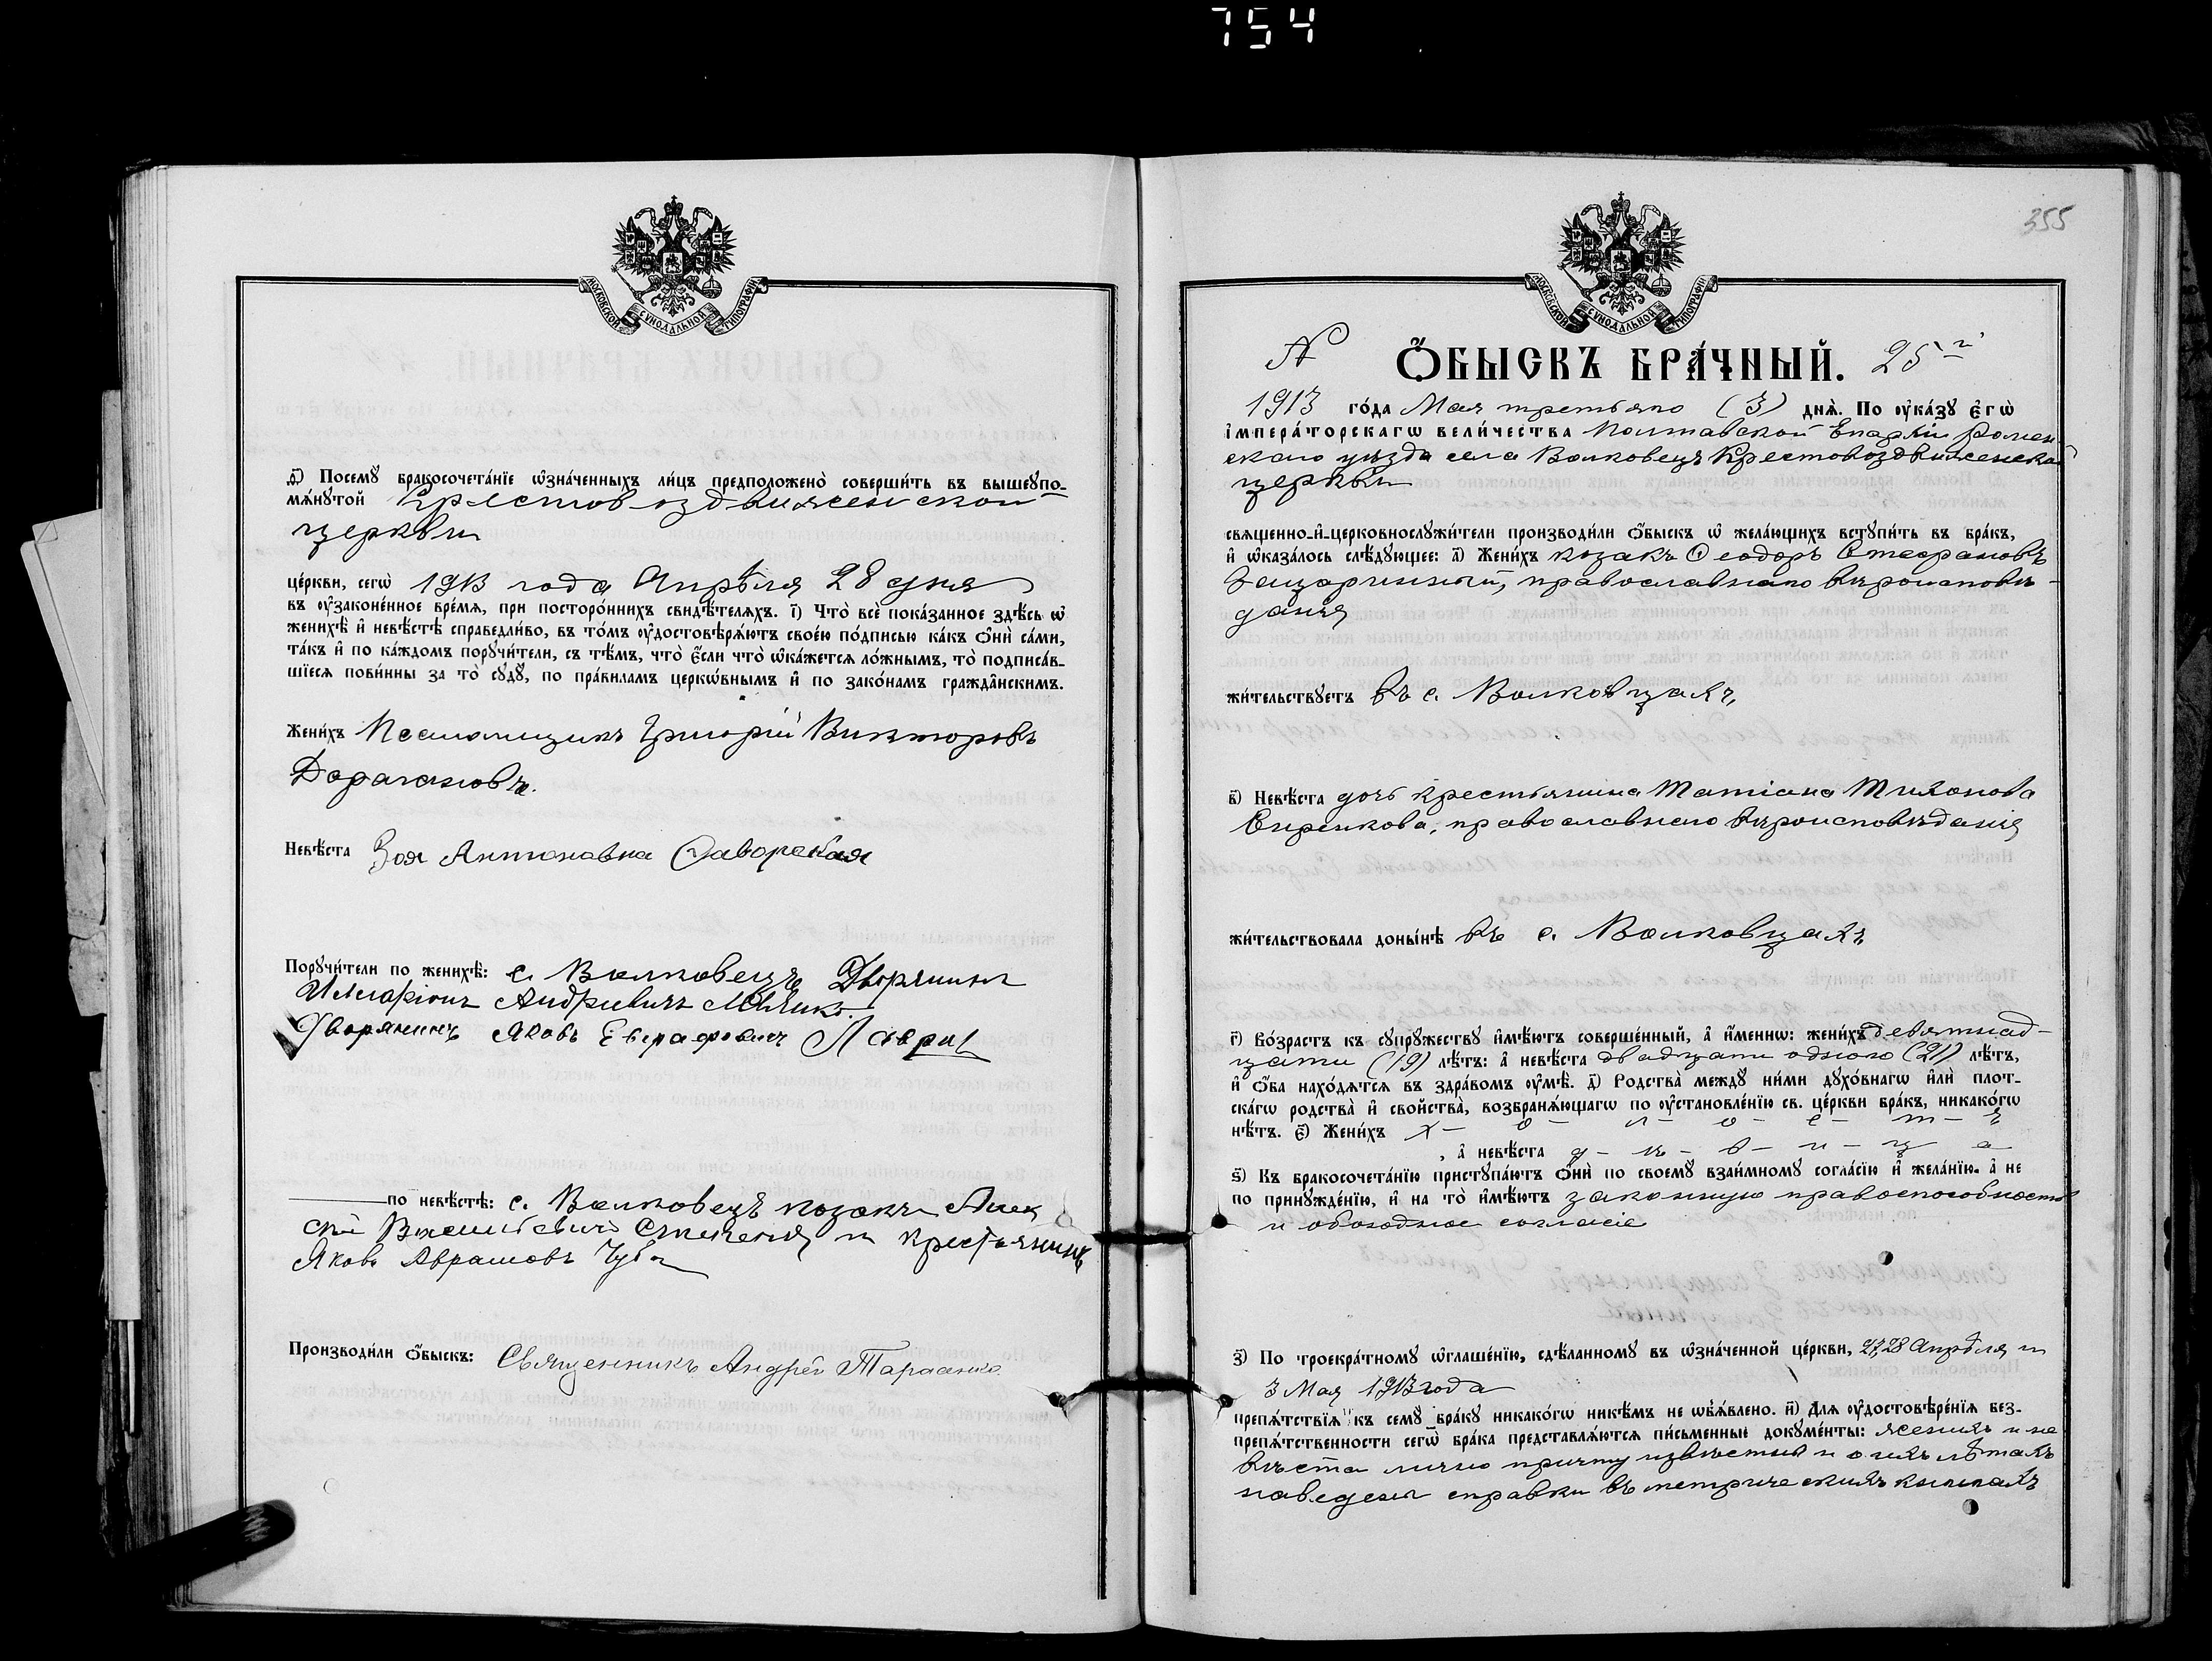 754
МОСКОВСКОЙ СѴНОДАЛЬНОЙ ТИПОГРАФІИ
ѳ҃) Посемꙋ бракосочета́нїе ѡ҆зна́ченныхъ ли́цъ предположено̀ соверши́ть въ вышеупо-
мѧ́нꙋтой Крестовоздвиженской
церкви
це́ркви, сегѡ̀ 1913 года Апрѣля 28 дня
въ ᲂу҆законе́нное вре́мѧ, при посторо́ннихъ свидѣ́телѧхъ. і҃) Что̀ всѐ пока́занное здѣ́сь ѡ҆
женихѣ̀ и҆ невѣ́стѣ справедли́во, въ то́мъ ᲂу҆достовѣрѧ́ютъ свое́ю по́дписью ка́къ ѻ҆нѝ са́ми,
та́къ и҆ по ка́ждомъ порꙋчи́тели, съ тѣ́мъ, что̀ є҆́сли что̀ ѡ҆ка́жетсѧ ло́жнымъ, то̀ подписа́в-
шїесѧ пови́нны за то̀ сꙋдꙋ̀, по пра́виламъ церкѡ́внымъ и҆ по зако́намъ гражда̂нскимъ.
Жени́хъ Псаломщикъ Григорій Викторовъ
Дорагановъ.
Невѣ́ста Зоя Антоновна Яворская
Порꙋчи́тели по женихѣ̀: с. Волковецъ Дворянинъ
Илларіонъ Андріевичъ
Дворянинъ Яковъ Евграфовичъ
по невѣ́стѣ: с. Волковецъ козакъ Алек
сій Васильевичъ и крестьянинъ
Яковъ Аврамовъ
Производи́ли ѻ҆́быскъ: Священникъ Андрей Тарасенко.
355
№ Ѻ҆́БЫСКЪ БРА́ЧНЫЙ. 25-й
1913 го́да Мая третьяго (3) днѧ̀. По ᲂу҆ка́зꙋ є҆гѡ̀
і҆мпера́торскагѡ вели́чества Полтавской Епархіи Ромен-
скаго уѣзда села Волковецъ Крестовоздвиженской
церкви
свѧщенно-и҆-церковнослꙋжи́тели производи́ли ѻ҆́быскъ ѡ҆ жела́ющихъ встꙋпи́ть въ бра́къ,
и҆ ѡ҆каза́лось слѣ́дꙋющее: а҃) Жени́хъ козакъ Ѳеодоръ Стефановъ
Зацаринный, православнаго вѣроисповѣ-
данія
жи́тельствꙋетъ въ с. Волковцахъ,
в҃) Невѣ́ста дочь крестьянина Татіана Тихонова
Сиренкова, православнаго вѣроисповѣданія
жи́тельствовала доны́нѣ въ с. Волковцахъ
г҃) Во́зрастъ къ сꙋпрꙋжествꙋ и҆мѣ́ютъ соверше́нный, а҆ и҆́меннѡ: жени́хъ девятнад-
цати (19) лѣ́тъ: а҆ невѣ́ста двадцати одного (21) лѣ́тъ,
и҆ ѻ҆́ба нахо́дѧтсѧ въ здра́вомъ ᲂу҆мѣ̀. д҃) Родства̀ междꙋ ни́ми дꙋхо́внагѡ и҆лѝ плот-
ска́гѡ родства̀ и҆ свойства̀, возбранѧ́ющагѡ по ᲂу҆становле́нїю св. це́ркви бра́къ, никако́гѡ
нѣ́тъ. є҃) Жени́хъ х- о- л- о- с- т- ъ
, а҆ невѣ́ста д- ѣ- в- и- ц а
ѕ҃) Къ бракосочета́нїю пристꙋпа́ютъ ѻ҆нѝ по своемꙋ̀ взаи́мномꙋ согла́сїю и҆ жела́нїю. а҆ не
по принꙋжде́нїю, и҆ на то̀ и҆мѣ́ютъ законную правоспособность
и обоюдное согласіе
з҃) По троекра́тномꙋ ѡ҆глаше́нїю, сдѣ́ланномꙋ въ ѡ҆зна́ченной це́ркви, 27, 28 Апрѣля и
3 Мая 1913 года
препѧ́тствїѧ къ семꙋ̀ бра́кꙋ никако́гѡ никѣ́мъ не ѡ҆б̾ѧ́влено. и҃) Длѧ ᲂу҆достовѣре́нїѧ без-
препѧ́тственности сегѡ̀ бра́ка представлѧ́ютсѧ пи́сьменные докꙋме́нты: женихъ и не
вѣста лично причту извѣстны и о ихъ лѣтахъ
наведены справки въ метрическихъ книгахъ